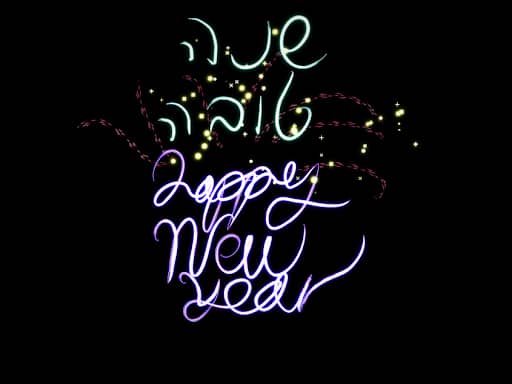 שנה
טובה
happy
New
year